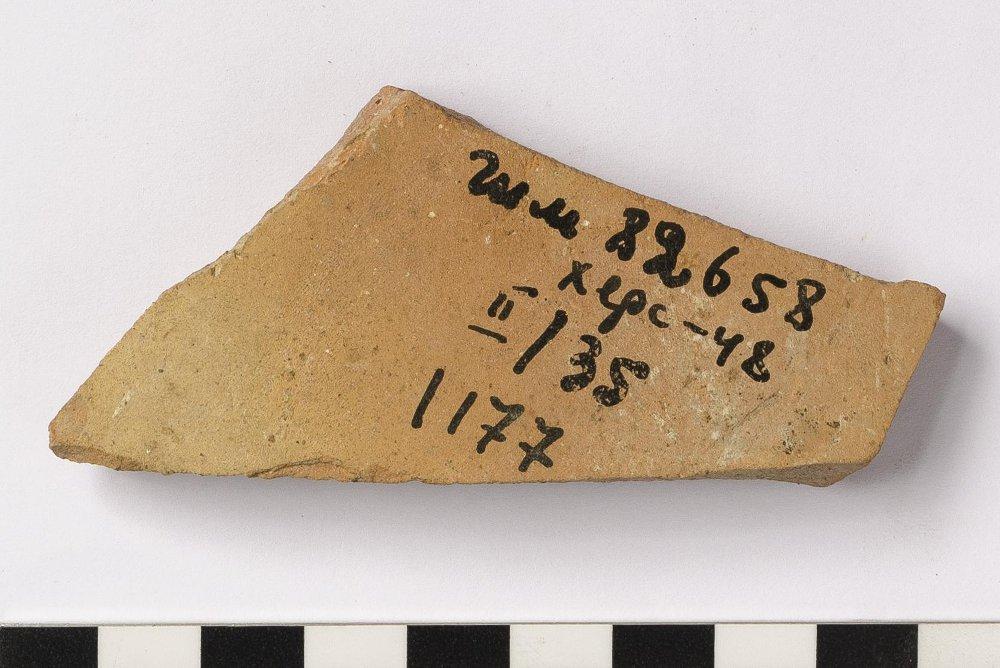 гим 82658
херс-48
II/35
1177